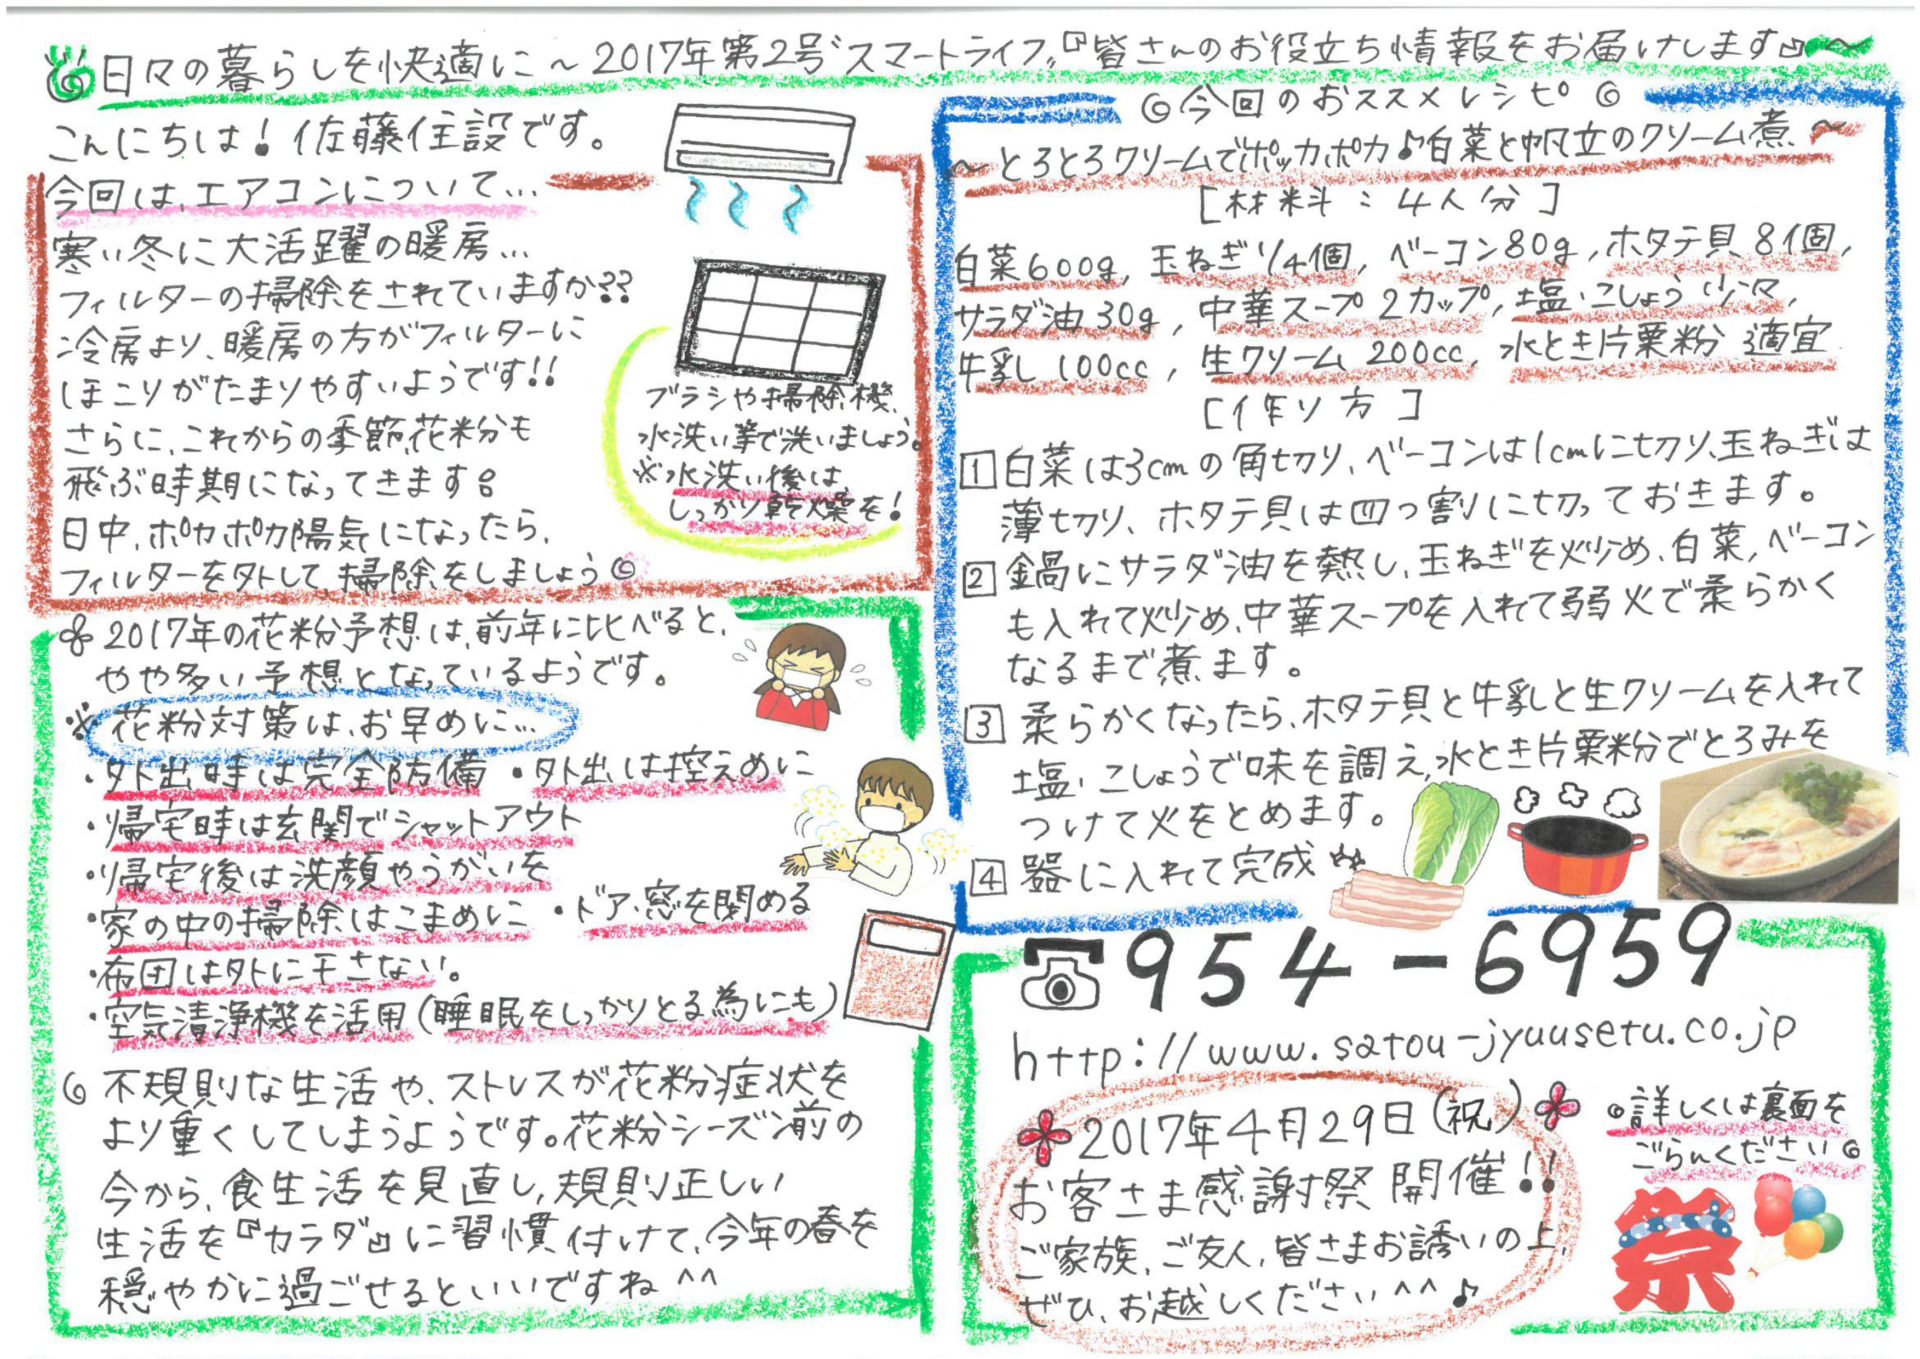 日々の暮らしを快適に～2017年第2号〝スマートライフ〟『皆さんのお役立ち情報をお届けします』～
こんにちは！佐藤住設です。
今回は、エアコンについて…
寒い冬に大活躍の暖房…
フィルターの掃除をされていますか??
冷房より、暖房の方がフィルターに
ほこりがたまりやすいようです!!
さらに、これからの季節、花粉も
飛ぶ時期になってきます。
日中、ポカポカ陽気になったら、
フィルターを外して、掃除をしましょう
ブラシや掃除機、
水洗い等で洗いましょう。
※水洗い後は、
しっかり乾燥を！
2017年の花粉予想は、前年に比べると、
やや多い予想となっているようです。
※花粉対策は、お早めに…
・外出時は完全防備 ・外出は控えめに
・帰宅時は玄関でシャットアウト
・帰宅後は洗顔やうがいを
・家の中の掃除はこまめに ・ドア、窓を閉める
・布団は外に干さない。
・空気清浄機を活用(睡眠をしっかりとる為にも)
不規則な生活や、ストレスが花粉症状を
より重くしてしまうようです。花粉シーズン前の
今から、食生活を見直し、規則正しい
生活を『カラダ』に習慣付けて、今年の春を
穏やかに過ごせるといいですね^^
◎今回のおススメレシピ◎
～とろとろクリームでポッカポカ♪白菜と帆立のクリーム煮～
[材料：4人分]
白菜600g, 玉ねぎ1/4個, ベーコン80g, ホタテ貝 8個,
サラダ油30g, 中華スープ 2カップ, 塩・こしょう 少々,
牛乳 100cc, 生クリーム 200cc, 水とき片栗粉 適宜
[作り方]
1 白菜は3cmの角切り、ベーコンは1cmに切り、玉ねぎは
薄切り、ホタテ貝は四つ割に切っておきます。
2 鍋にサラダ油を熱し、玉ねぎを炒め、白菜、ベーコン
も入れて炒め、中華スープを入れて弱火で柔らかく
なるまで煮ます。
3 柔らかくなったら、ホタテ貝と牛乳と生クリームを入れて
塩・こしょうで味を調え、水とき片栗粉でとろみを
つけて火をとめます。
4 器に入れて完成
☎954-6959
http://www.satou-jyuusetu.co.jp
2017年4月29日(祝)
お客さま感謝祭開催!!
ご家族、ご友人、皆さまお誘いの上、
ぜひ、お越しください^^♪
◎詳しくは裏面を
ごらんください◎
祭